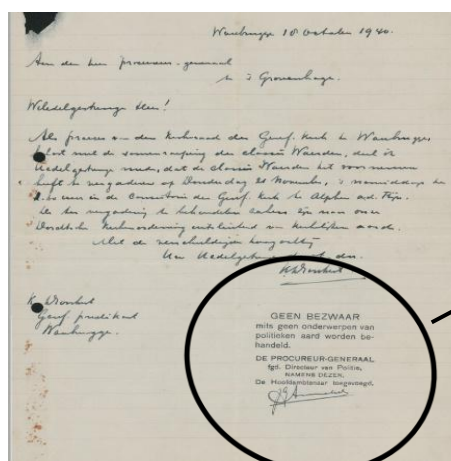 Wanbrugge 18 October 1940.
Aan den heer procureur-generaal
te 's Gravenhage.
Weledelgestrenge Heer!
Als praeses van den Kerkeraad der Geref. Kerk te Wanbrugge
belast met de samenroeping der classis Woerden, deel ik
Uedelgestrenge mede, dat de classis Woerden het voornemen
heeft te vergaderen op Donderdag 21 November, 's namiddags
uur in de Consistorie der Geref. Kerk te Alphen a.d. Rijn.
De ter vergadering te behandelen zaken zijn naar onze
Dordtsche Kerkenordening uitsluitend van kerkelijken aard.
Met de verschuldigde hoogachting
Geref. predikant
Wanbrugge.
GEEN BEZWAAR
mits geen onderwerpen van
politieken aard worden be-
handeld.
DE PROCUREUR-GENERAAL
fgd. Directeur van Politie,
NAMENS DEZEN,
De Hoofdambtenaar toegevoegd,